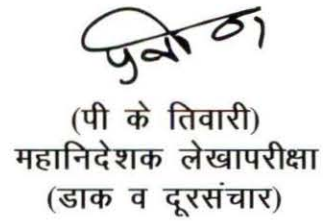 (पी के तिवारी)
महानिदेशक लेखापरीक्षा
(डाक व दूरसंचार)